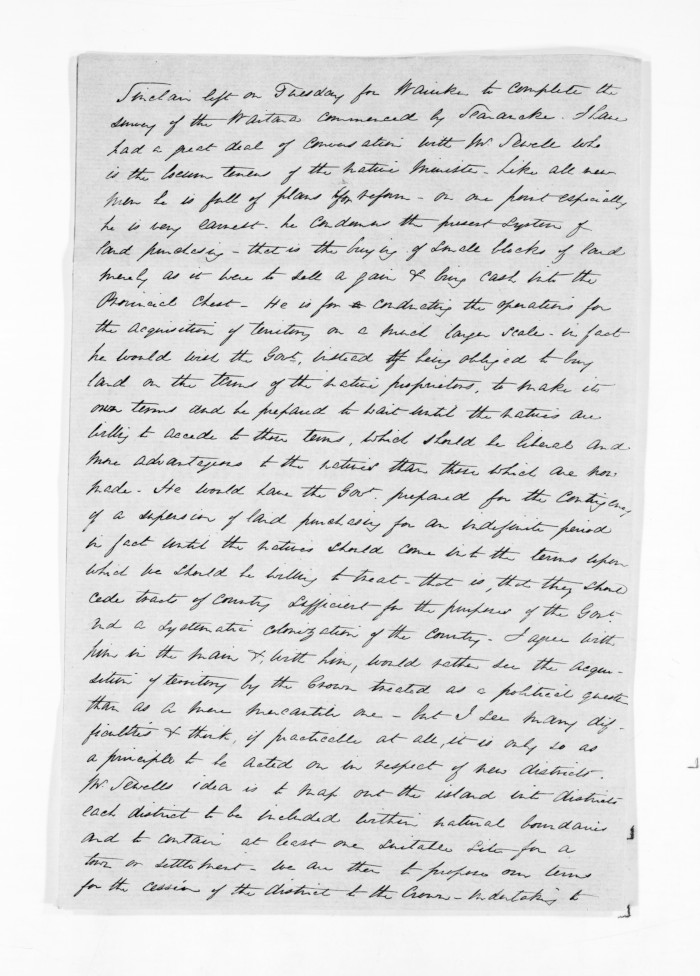 Sinclair left on Tuesday for Waiuku to complete the
survey of the Waitara commenced by Searancke. I have
had a great deal of conversation with Mr Sewell who
is the locum tenens of the Native Minister. Like all new
men he is full of plans for reform - on one point especially
he is very earnest. he condemns the present system of
land purchasing - that is the buying of single blocks of land
merely as it were to sell a gain & bring cash into the
Provincial Chest - He is for conducting the operations for
the acquisition of territory on a much larger scale - in fact
he would wish the Govt, instead of being obliged to buy
land on the terms of the native proprietors, to make its
own terms and be prepared to wait until the natives are
willing to accede to those terms, which should be liberal and
more advantageous to the natives than those which are now
made - He would have the Govt. prepared for the contingency
of a supension of land purchasing for an indefinite period
in fact until the natives should come into the terms upon
which we should be willing to treat - that is, that they should
cede tracts of country sufficient for the purposes of the Govt.
and a systematic colonization of the country - I agree with
him in the main &, with him, would rather see the acqui-
sition of territory by the Crown treated as a political question
than as a mere mercantile one - but I see many dif-
ficulties & think, if practicable at all, it is only so as
a principle to be acted on in respect of new districts.
Mr Sewells idea is to map out the island into districts
each district to be included within natural boundaries
and to contain at least one suitable site for a
town or settlement - we are then to propose our terms
for the cession of the district to the Crown - undertaking to